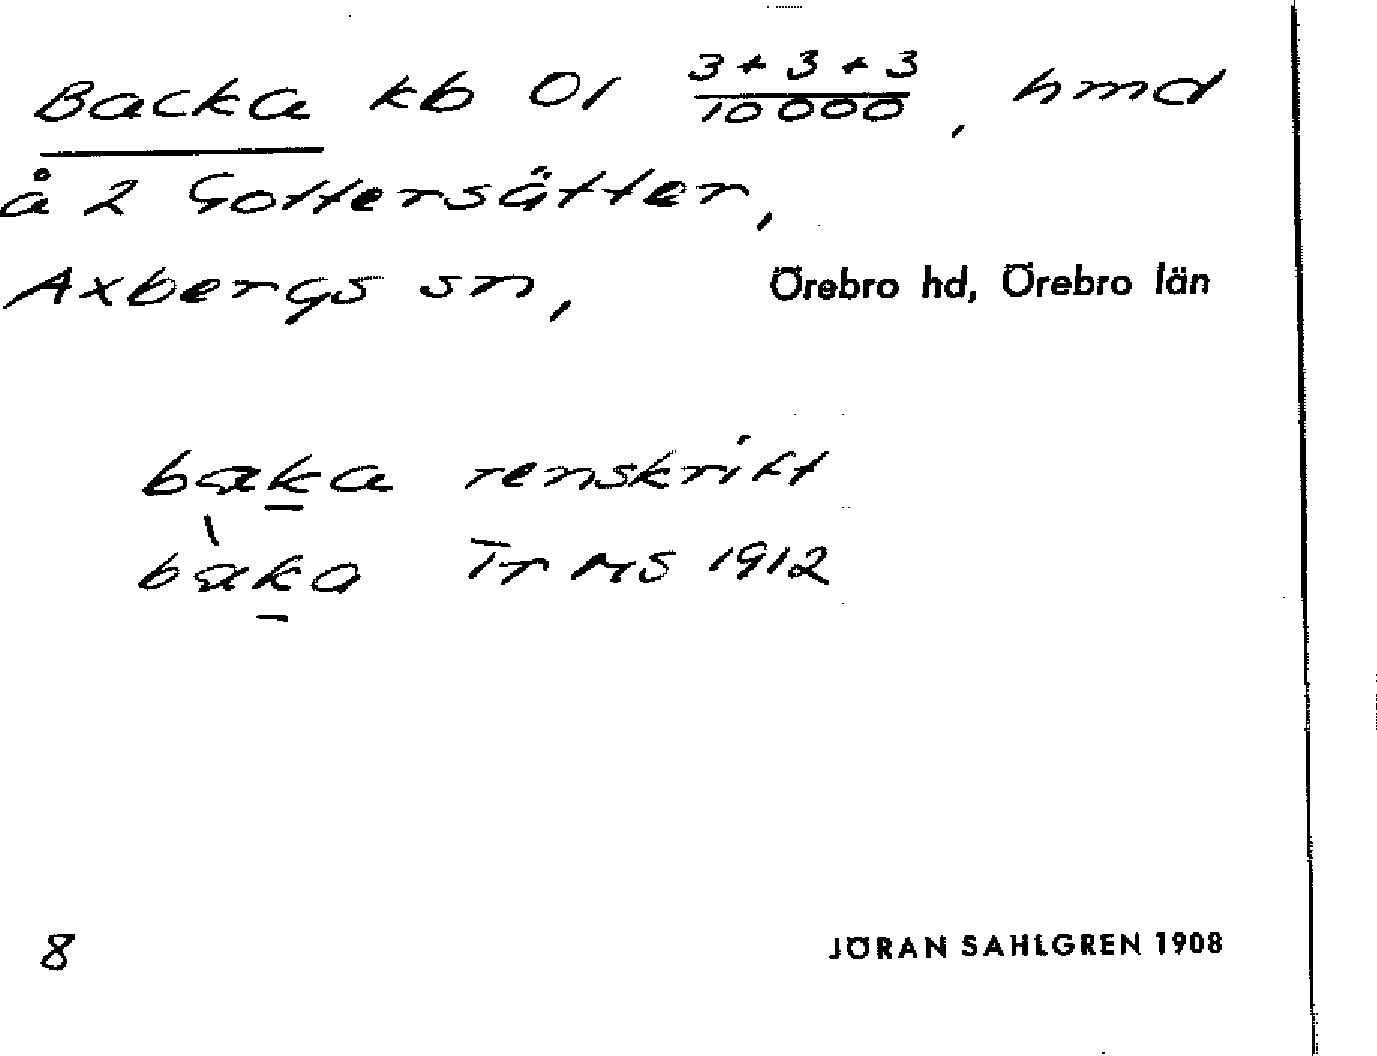 Backa kb 01 3+3+3/10000, hmd
å 2 Gottersätter,
Axbergs sn, Örebro hd, Örebro län
baka renskrift
bàka Tr MS 1912
8 JÖRAN SAHLGREN 1908